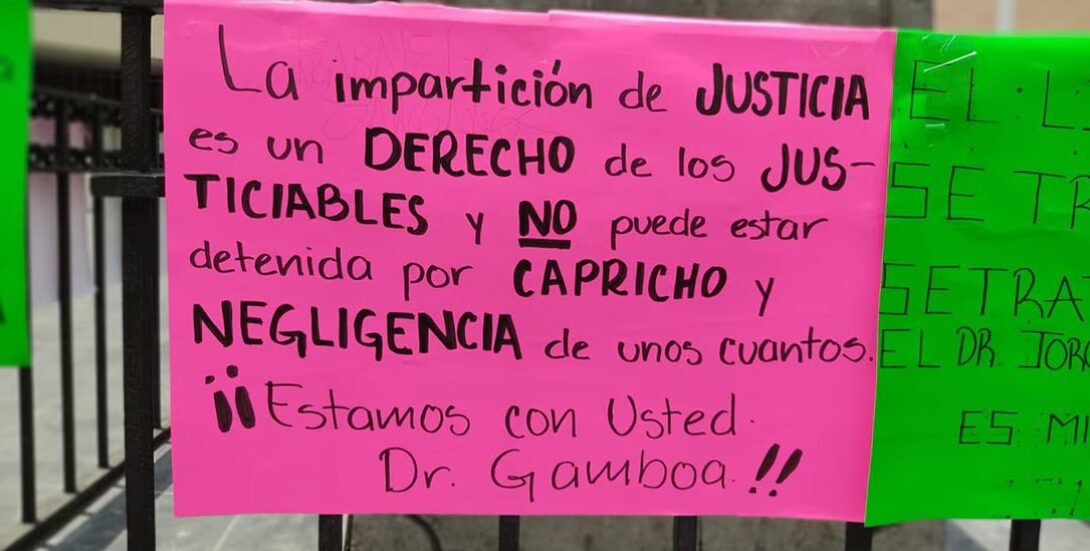 La impartición de JUSTICIA
es un DERECHO de los JUS-
TICIABLES y NO puede estar
detenida por CAPRICHO y
NEGLIGENCIA de unos cuantos.
¡¡Estamos con Usted.
Dr. Gamboa.!!
EL
SE
EL DR.
ES